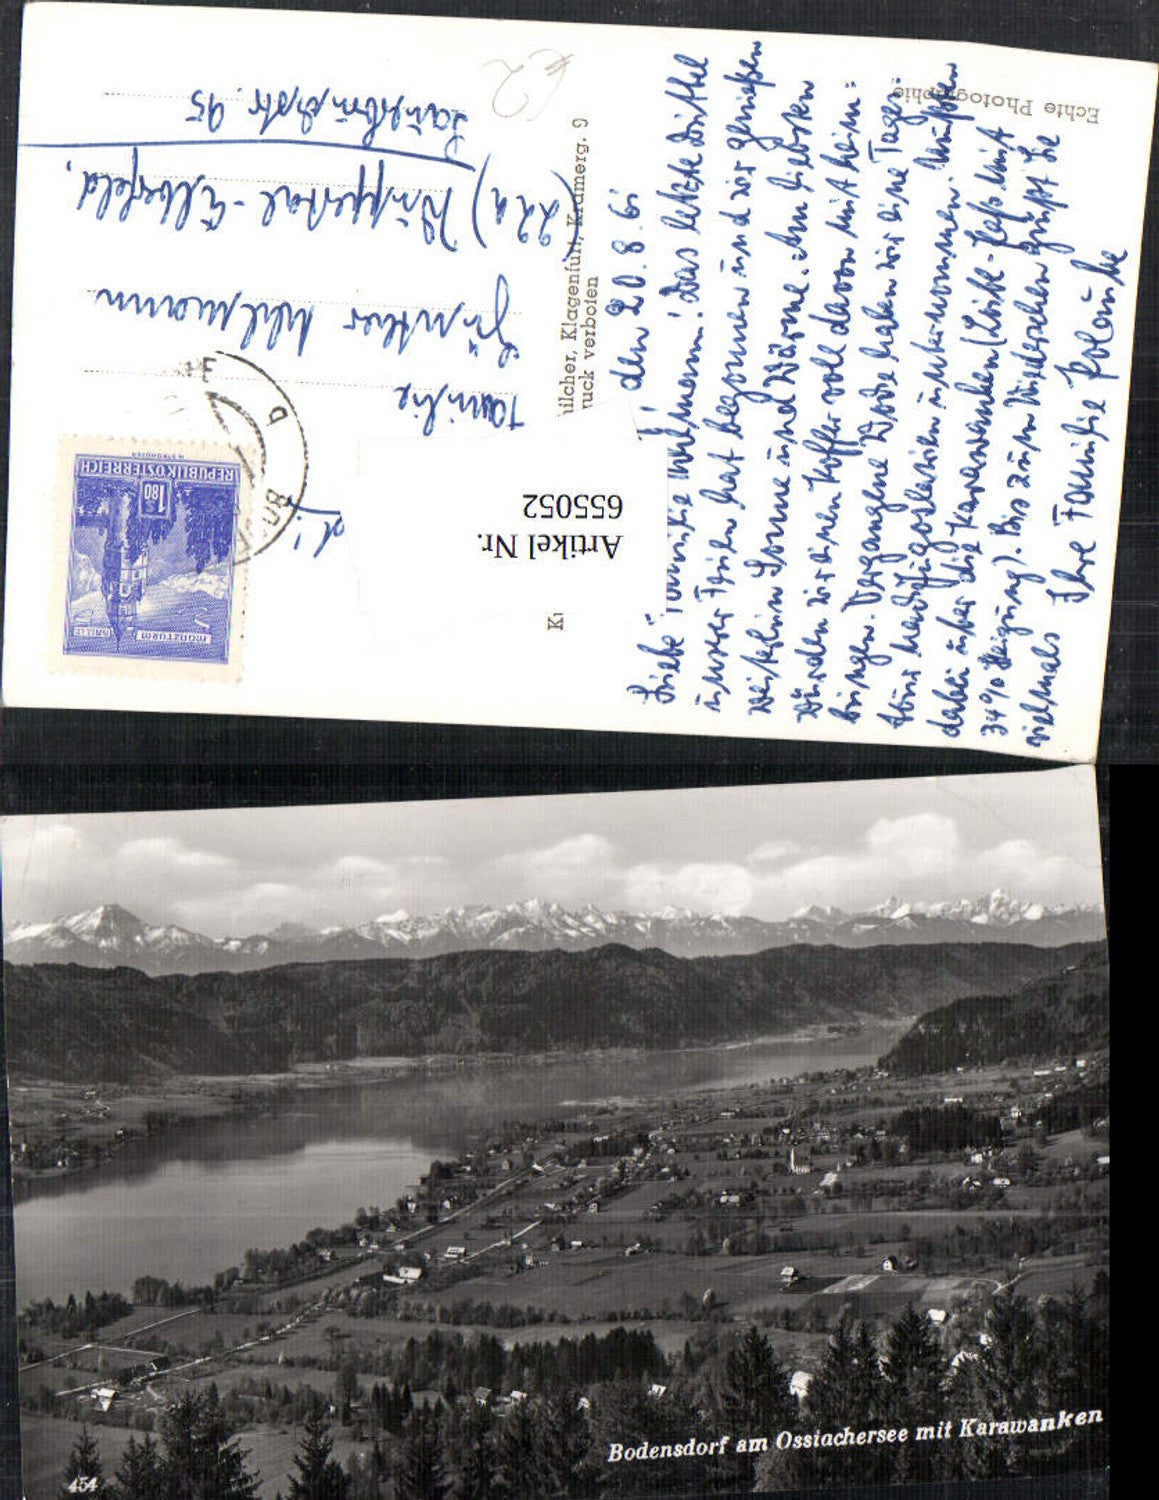 Echte Photographie
€2
den 20. 8. 61
Liebe Familie Uhlmann! Das letzte Drittel
unserer Ferien hat begonnen und wir genießen
weiterhin Sonne und Wärme. Am liebsten
würden wir einen Koffer voll davon mit heim=
bringen. Vergangene Woche haben wir eine Tages-
tour nach Jugoslawien unternommen. Mußten
dabei über die Karawanken (Loibl-Paß mit
34% Steigung). Bis zum Wiedersehen grüßt Sie
vielmals
Ihre Familie
Familie
Günther Uhlmann
(22a) Wuppertal-Elberfeld,
str. 95
Klagenfurt, Kramerg. 9
ruck verboten
Artikel Nr.
655052
REPUBLIK ÖSTERREICH
1.80
S
MÜNZTURM
Bodensdorf am Ossiachersee mit Karawanken
454